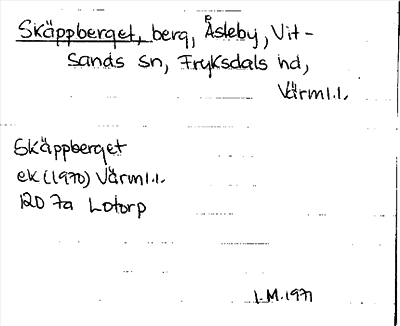 Skäppberget, berg, Åsleby, Vit-
sands sn, Fryksdals hd,
Värml.l.
Skäppberget
ek (1970) Värml.l.
12D 7a Lotorp
I.M. 1971